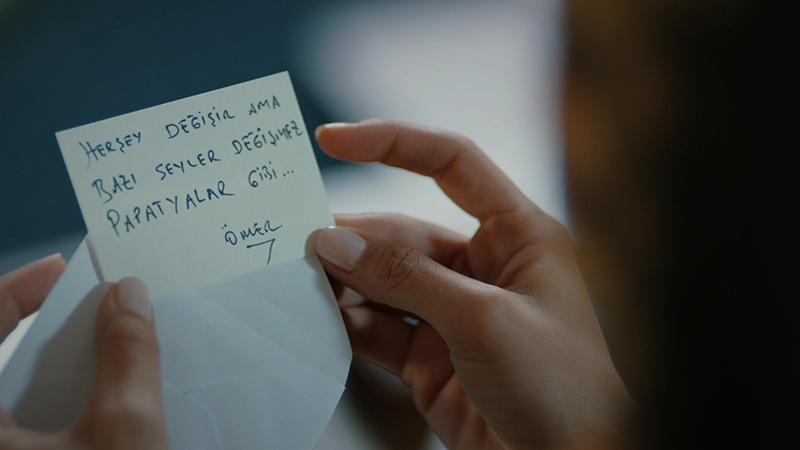 HERŞEY DEĞİŞİR AMA
BAZI ŞEYLER DEĞİŞMEZ
PAPATYALAR GİBİ...
ÖMER